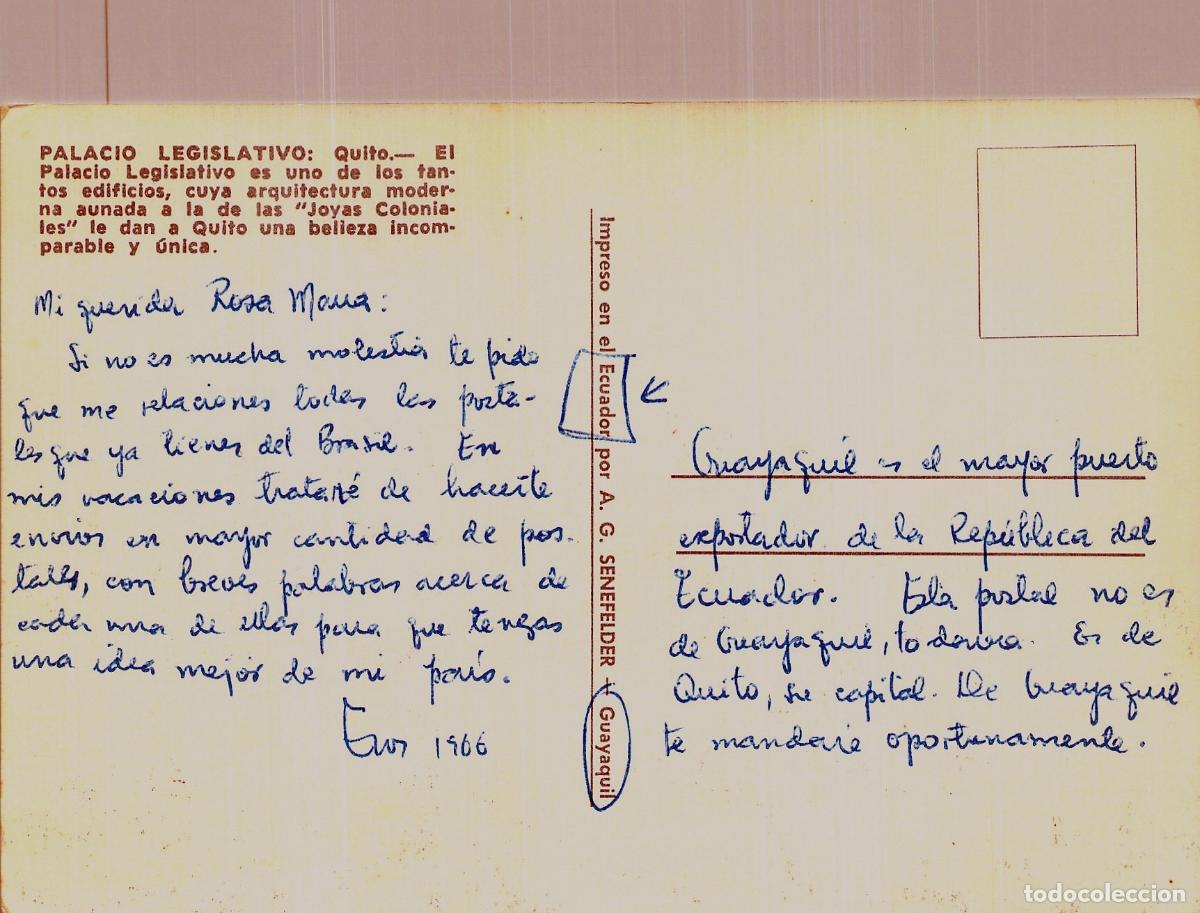 PALACIO LEGISLATIVO: Quito.— El
Palacio Legislativo es uno de los tan-
tos edificios, cuya arquitectura moder-
na aunada a la de las "Joyas Colonia-
les" le dan a Quito una belleza incom-
parable y única.
Mi querida Rosa María:
Si no es mucha molestia te pido
que me relaciones todas las posta-
les que ya tienes del Brasil. En
mis vacaciones trataré de hacerte
envios en mayor cantidad de pos-
tales, con breves palabras acerca de
cada una de ellas para que tengas
una idea mejor de mi país.
1966
Impreso en el Ecuador por A. G. SENEFELDER Guayaquil
Guayaquil es el mayor puerto
exportador de la República del
Ecuador. Esta postal no es
de Guayaquil, todavia. Es de
Quito, su capital. De Guayaquil
te mandaré oportunamente.
todocoleccion